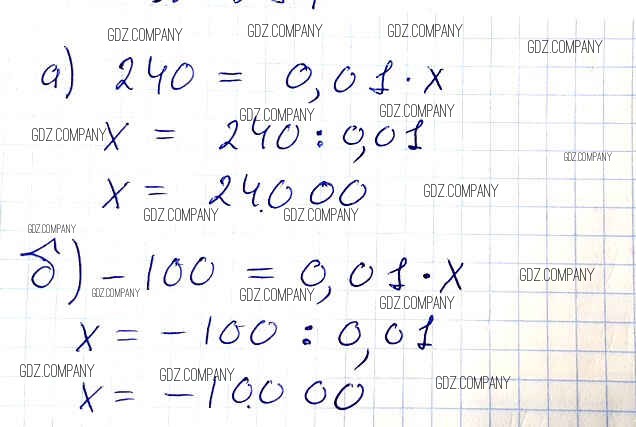 GDZ.COMPANY GDZ.COMPANY GDZ.COMPANY GDZ.COMPANY
а) 240 = 0,01·x
GDZ.COMPANY GDZ.COMPANY GDZ.COMPANY
x = 240 : 0,01
GDZ.COMPANY
x = 24.000
GDZ.COMPANY GDZ.COMPANY GDZ.COMPANY
GDZ.COMPANY
б) -100 = 0,01·x
GDZ.COMPANY GDZ.COMPANY GDZ.COMPANY GDZ.COMPANY
x = -100 : 0,01
GDZ.COMPANY GDZ.COMPANY GDZ.COMPANY
x = -10.000